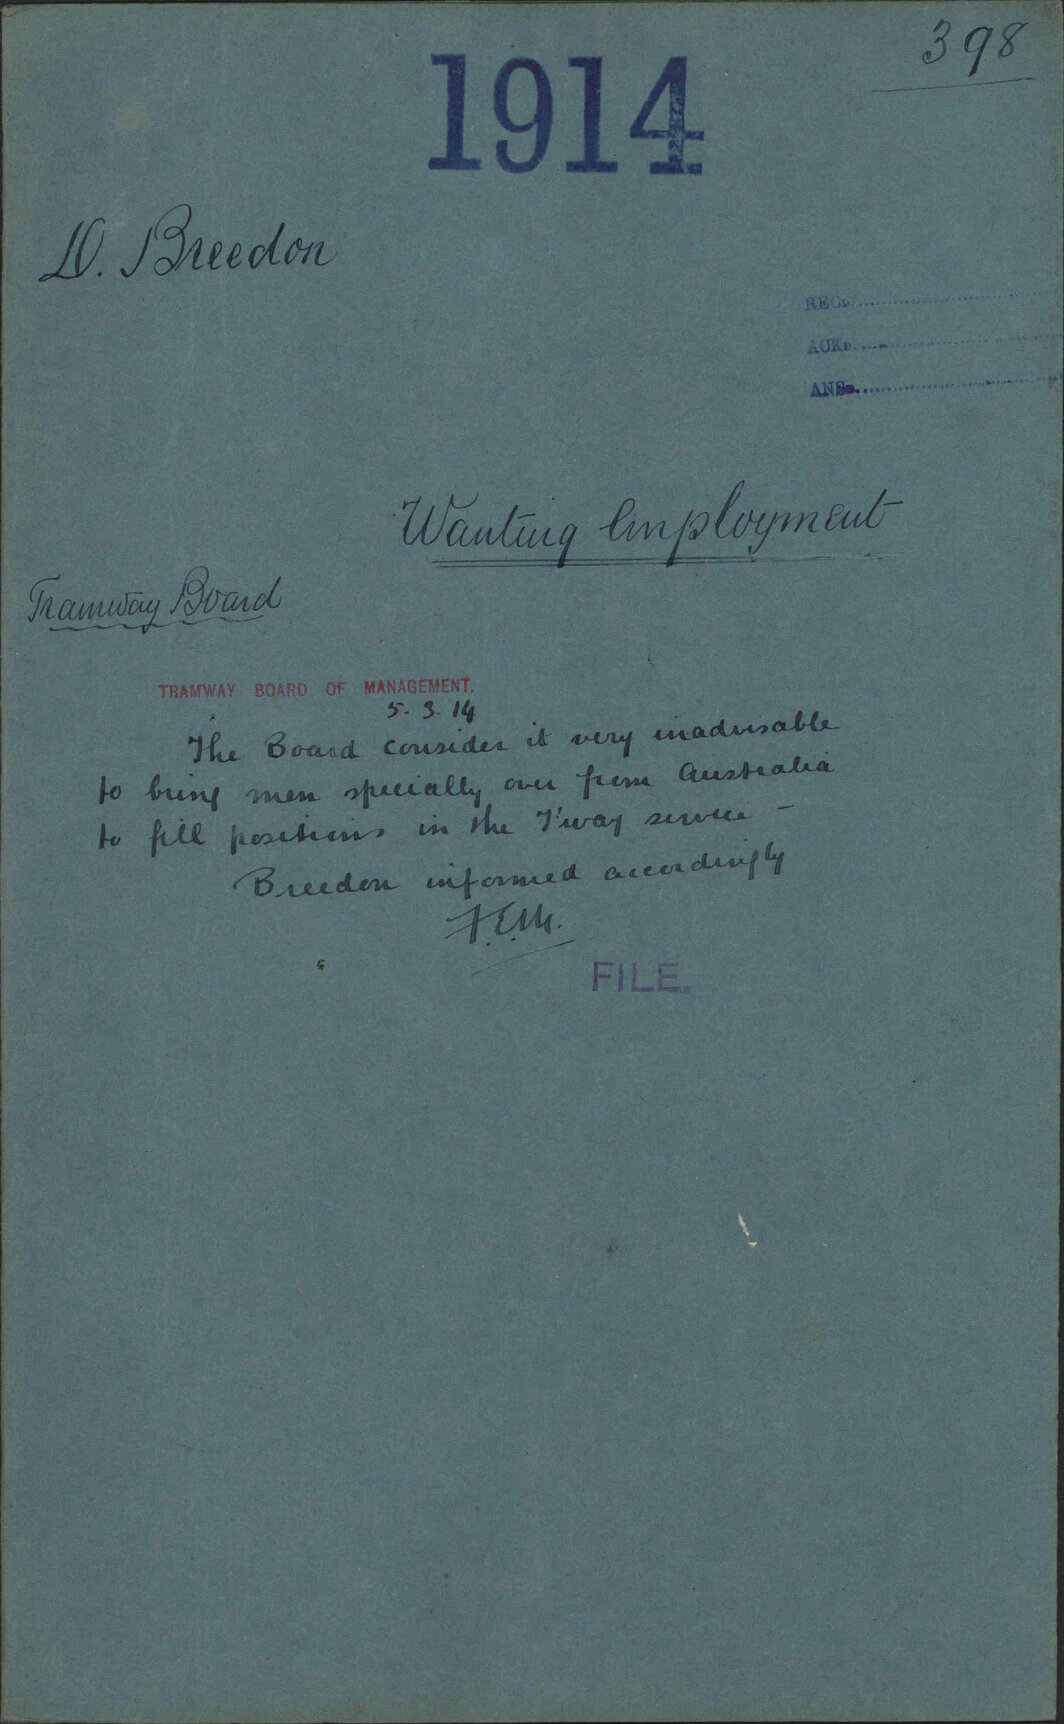 398
1914
D. Breedon
RECD.
ACKD.
ANSD.
Wanting Employment
Tramway Board
TRAMWAY BOARD OF MANAGEMENT.
5. 3. 14
The Board consider it very inadvisable
to bring men specially over from Australia
to fill positions in the T'way service –
Breedon informed accordingly
FILE.